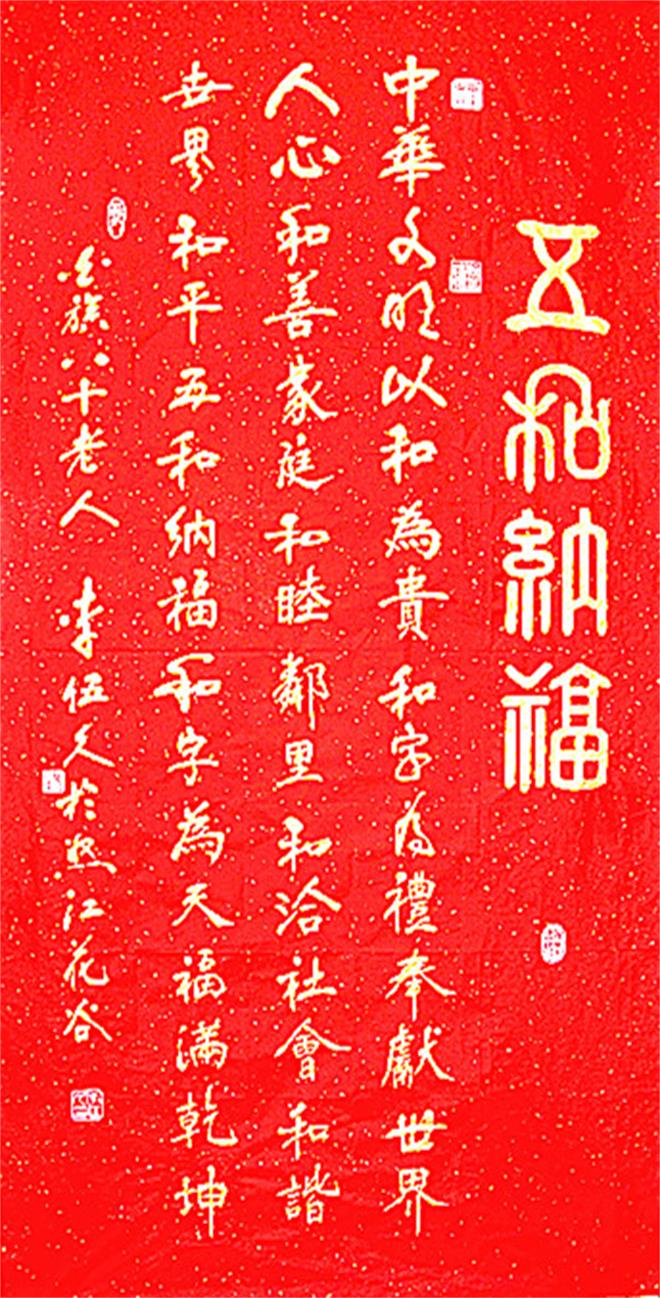 五和納福
中華文明以和為貴和字為禮奉獻世界
人心和善家庭和睦鄰里和洽社會和諧
世界和平五和納福和字為天福滿乾坤
族八十老人 李伍久於江花谷